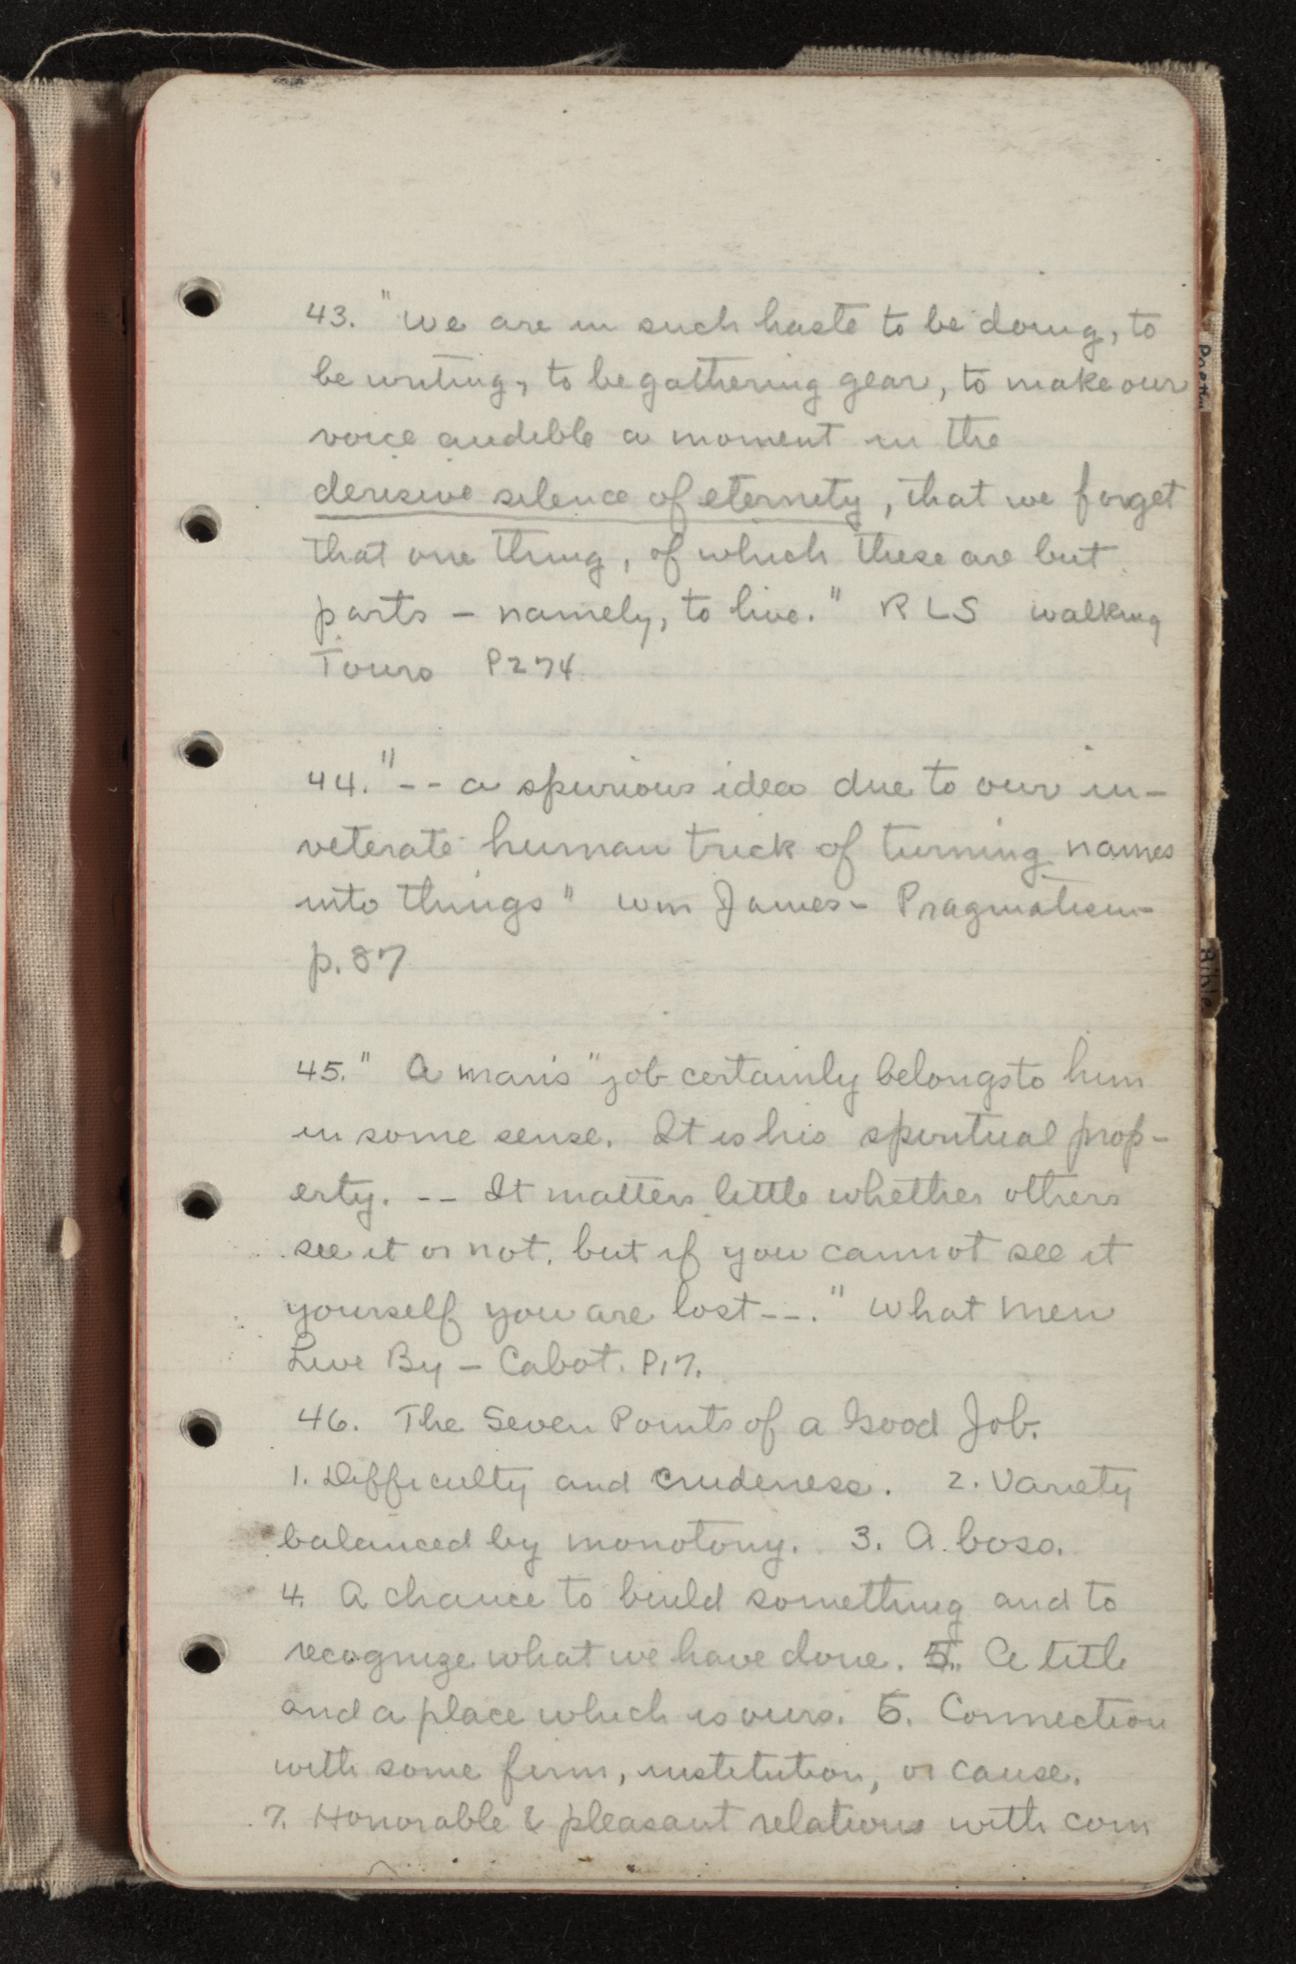 43. "We are in such haste to be doing, to
be writing, to be gathering gear, to make our
voice audible a moment in the
derisive silence of eternity, that we forget
that one thing, of which these are but
parts – namely, to live." RLS Walking
Tours P274
44. "-- a spurious idea due to our in-
veterate human trick of turning names
into things" Wm James – Pragmatism –
p. 87
45." A man's "job certainly belongs to him
in some sense. It is his spiritual prop-
erty. -- It matters little whether others
see it or not, but if you cannot see it
yourself you are lost--." What Men
Live By – Cabot. P17.
46. The Seven Points of a Good Job.
1. Difficulty and crudeness. 2. Variety
balanced by monotony. 3. A boss.
4. A chance to build something and to
recognize what we have done. 5. A title
and a place which is ours. 6. Connection
with some firm, institution, or cause.
7. Honorable & pleasant relations with com
Bible